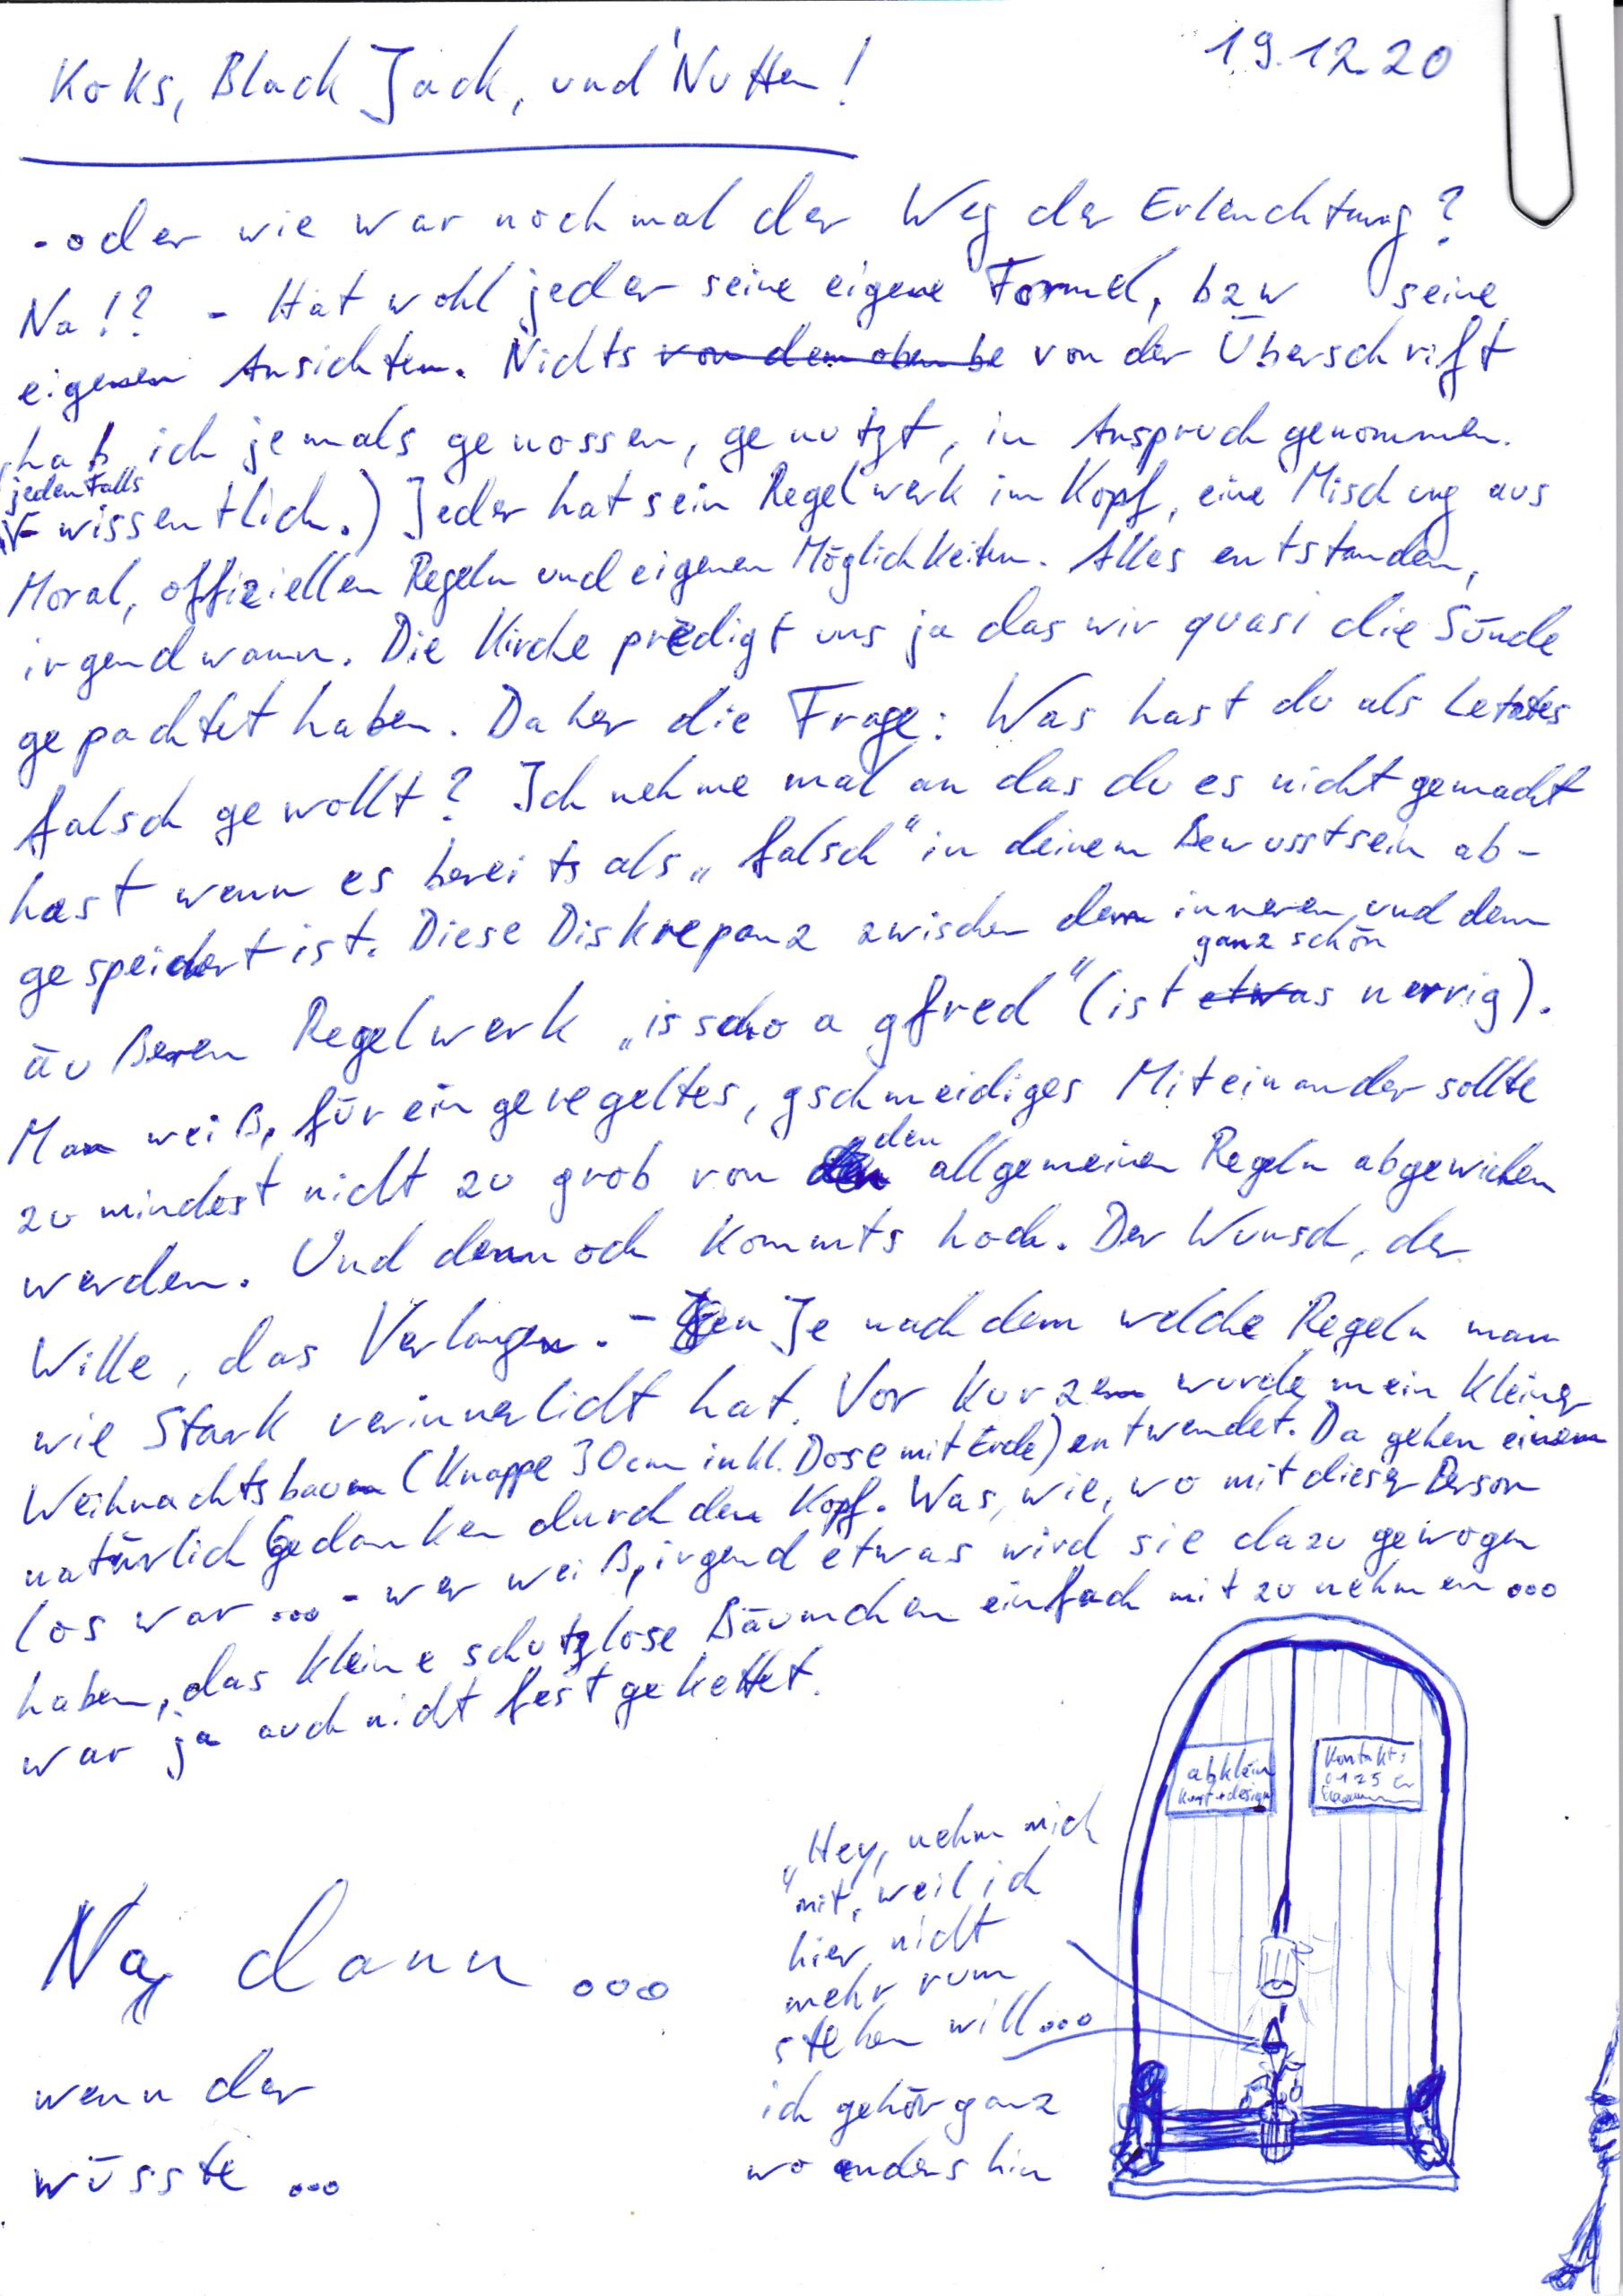 19.12.20
Koks, Black Jack, und Nutten!
- oder wie war nochmal der Weg der Erleuchtung?
Na!? - Hat wohl jeder seine eigene Formel, bzw seine
eigenen Ansichten. Nichts von dem oben be von der Überschrift
hab ich jemals genossen, genutzt, in Anspruch genommen.
jedenfalls
wissentlich.) Jeder hat sein Regelwerk im Kopf, eine Mischung aus
Moral, offiziellen Regeln und eigenen Möglichkeiten. Alles entstanden,
irgendwann. Die Kirche predigt uns ja das wir quasi die Sünde
gepachtet haben. Daher die Frage: Was hast du als Letztes
falsch gewollt? Ich nehme mal an das du es nicht gemacht
hast wenn es bereits als „falsch“ in deinem Bewusstsein ab-
gespeichert ist. Diese Diskrepanz zwischen dem inneren und dem
ganz schön
äußeren Regelwerk „is scho a gfred“ (ist etwas nervig).
Man weiß, für ein geregeltes, gschmeidiges Miteinander sollte
den
zumindest nicht zu grob von allgemeinen Regeln abgewichen
werden. Und dennoch kommts hoch. Der Wunsch, der
Wille, das Verlangen. - Je nach dem welche Regeln man
wie Stark verinnerlicht hat. Vor kurzem wurde mein kleiner
Weihnachtsbaum (knappe 30cm inkl. Dose mit Erde) entwendet. Da gehen einem
natürlich Gedanken durch den Kopf. Was, wie, wo mit dieser Person
los war ... - wer weiß, irgend etwas wird sie dazu gewogen
haben, das kleine schutzlose Bäumchen einfach mit zu nehmen ...
war ja auch nicht fest gekettet.
abklein
Kunst + design
Kontakt:
0125
„Hey, nehm mich
mit, weil ich
hier nicht
mehr rum
stehen will ...
ich gehör ganz
wo anders hin
Na, dann ...
wenn der
wüsste ...